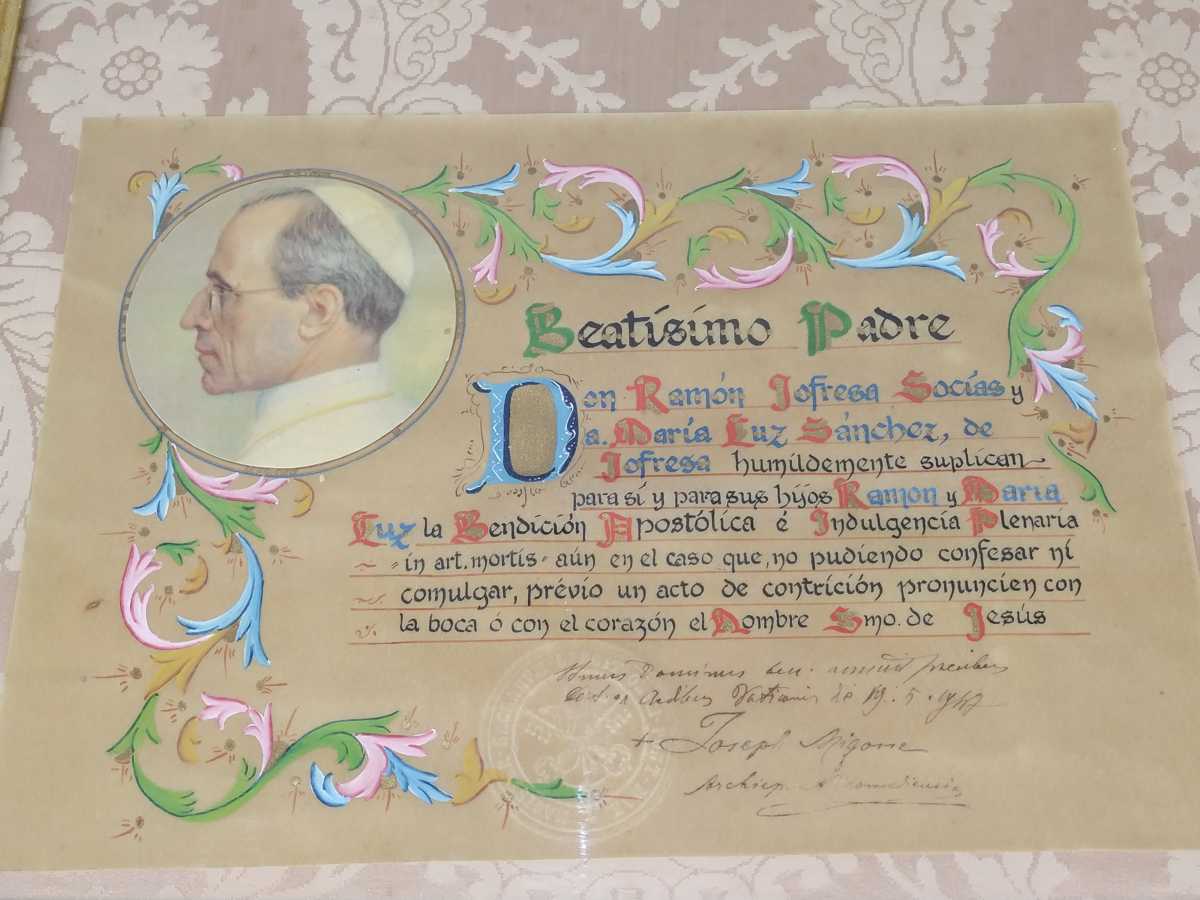 Beatísimo Padre
Don Ramón Jofresa Socías y
Da. María Luz Sánchez, de
Jofresa humildemente suplican
para sí y para sus hijos Ramon y Maria
Luz la Bendición Apostólica é Indulgencia Plenaria
in art. mortis - aún en el caso que, no pudiendo confesar ni
comulgar, prévio un acto de contrición pronuncien con
la boca ó con el corazón el Nombre Smo. de Jesús
Dominus
19. 5. 1947
+ Joseph Migone
Archiep.